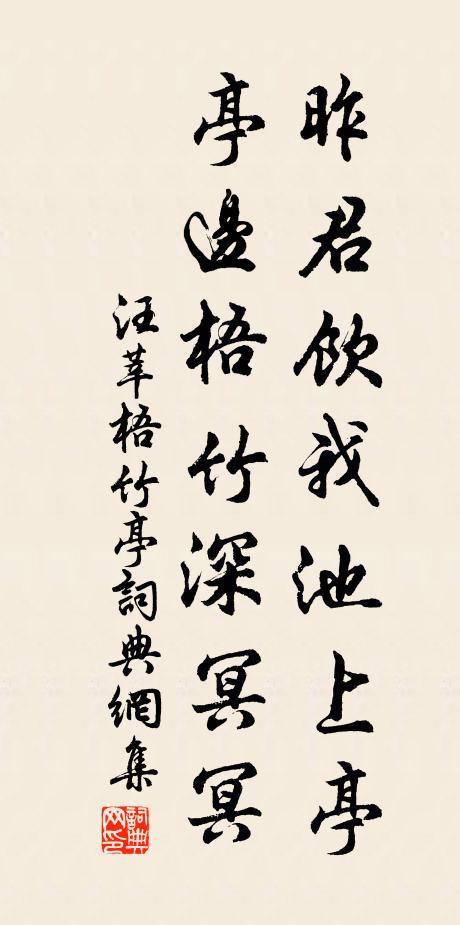 昨君飲我池上亭
亭邊梧竹深冥冥
汪莘梧竹亭詞典網集
詞典網印